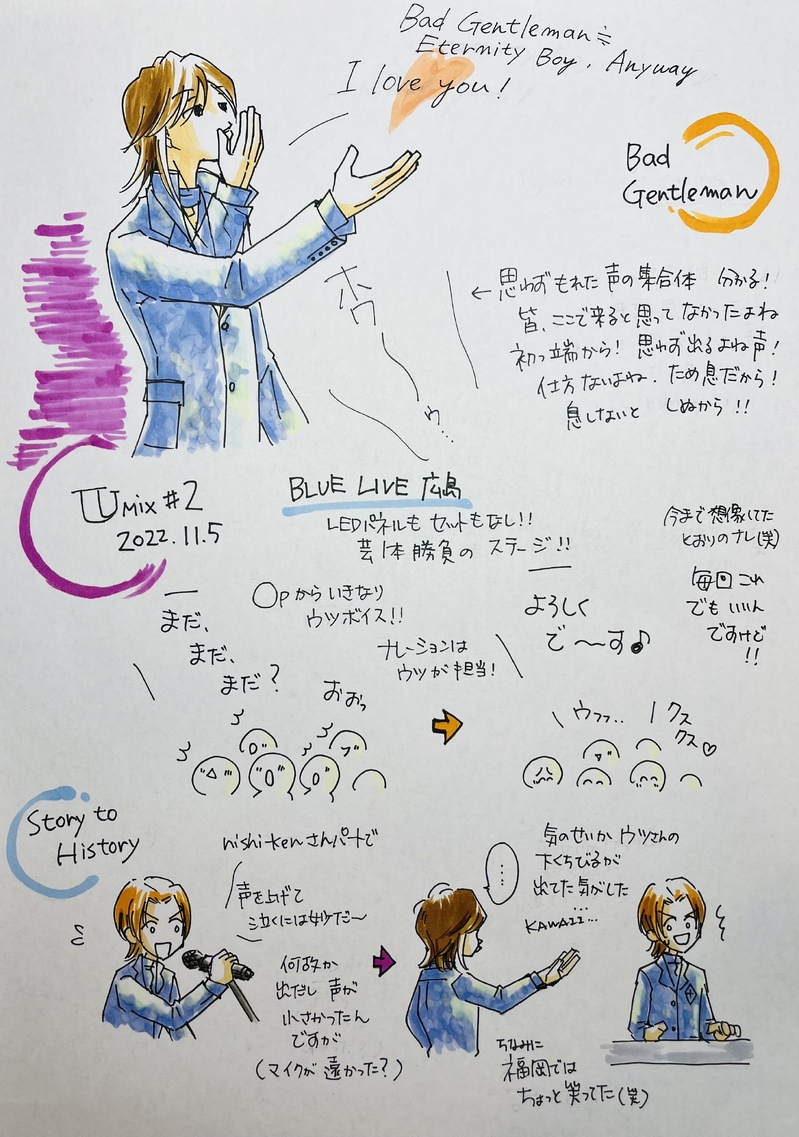 Bad Gentleman ≒
Eternity Boy, Anyway
I love you!
Bad
Gentleman
ホウ
ゥ…
← 思わずもれた 声の集合体 分かる!
皆、ここで来ると思ってなかったよね
初っ端から! 思わず出るよね声!
仕方ないよね。ため息だから!
息しないと しぬから!!
U mix #2
2022.11.5
BLUE LIVE 広島
LEDパネルも セットもなし!!
芸1本勝負の ステージ!!
今まで想像してた
とおりのナレ(笑)
毎回これ
でもいいん
ですけど
!!
Opからいきなり
ウツボイス!!
ナレーションは
ウツが担当!
まだ、
まだ、
まだ?
おおっ
よろしく
で〜〜す♪
ウフフ..
クス
クス♡
Story to
History
nishi-kenさんパートで
声を上げて
泣くには妙だ〜
何故か
出だし 声が
小さかったん
ですが
(マイクが 遠かった?)
…
気のせいか ウツさんの
下くちびるが
出てた気がした
KAWAII…
ちなみに
福岡では
ちょっと笑ってた(笑)